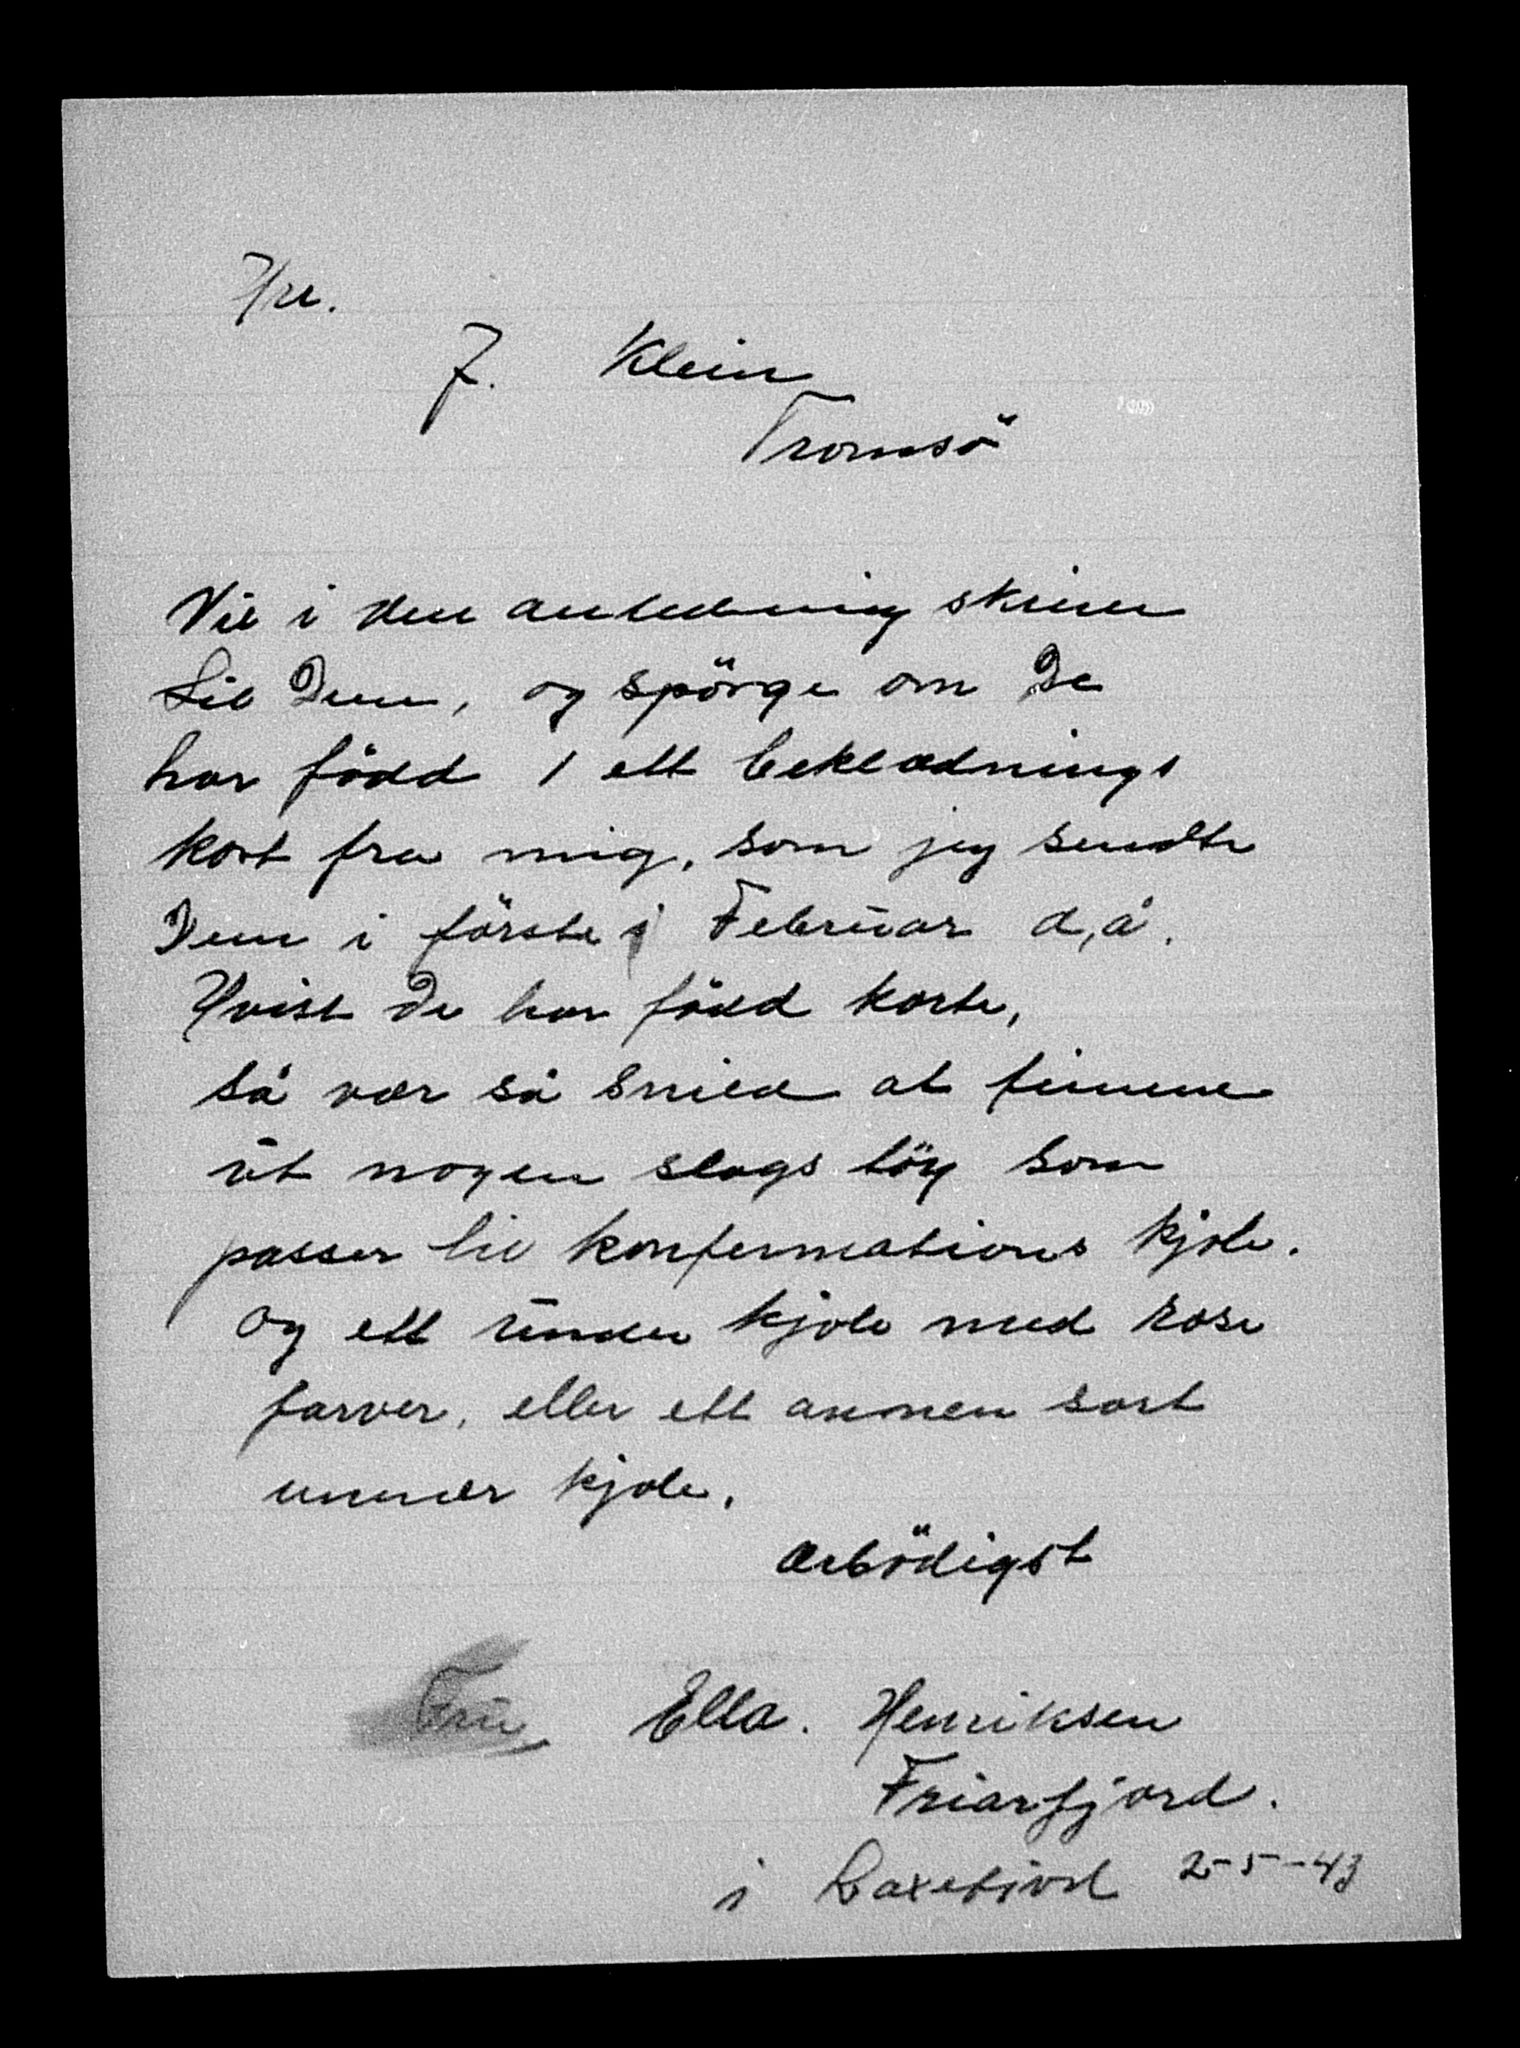 Hrr.
J. Klein
Tromsö
Vil i den anledning skriver
til Dem, og spörge om De
har född 1 ett beklædnings
kort fra mig, som jeg sendte
Dem i förste i Februar d,å.
Hvist De har född korte,
så vær så snild at finne
ut nogen slags töy som
passer til konfermations kjole.
og ett under kjole med rose
farver, eller ett annen sort
unnær kjole.
ærbödigst
Fru Ella. Henriksen
Friarfjord.
i Laxefjord 2-5-43